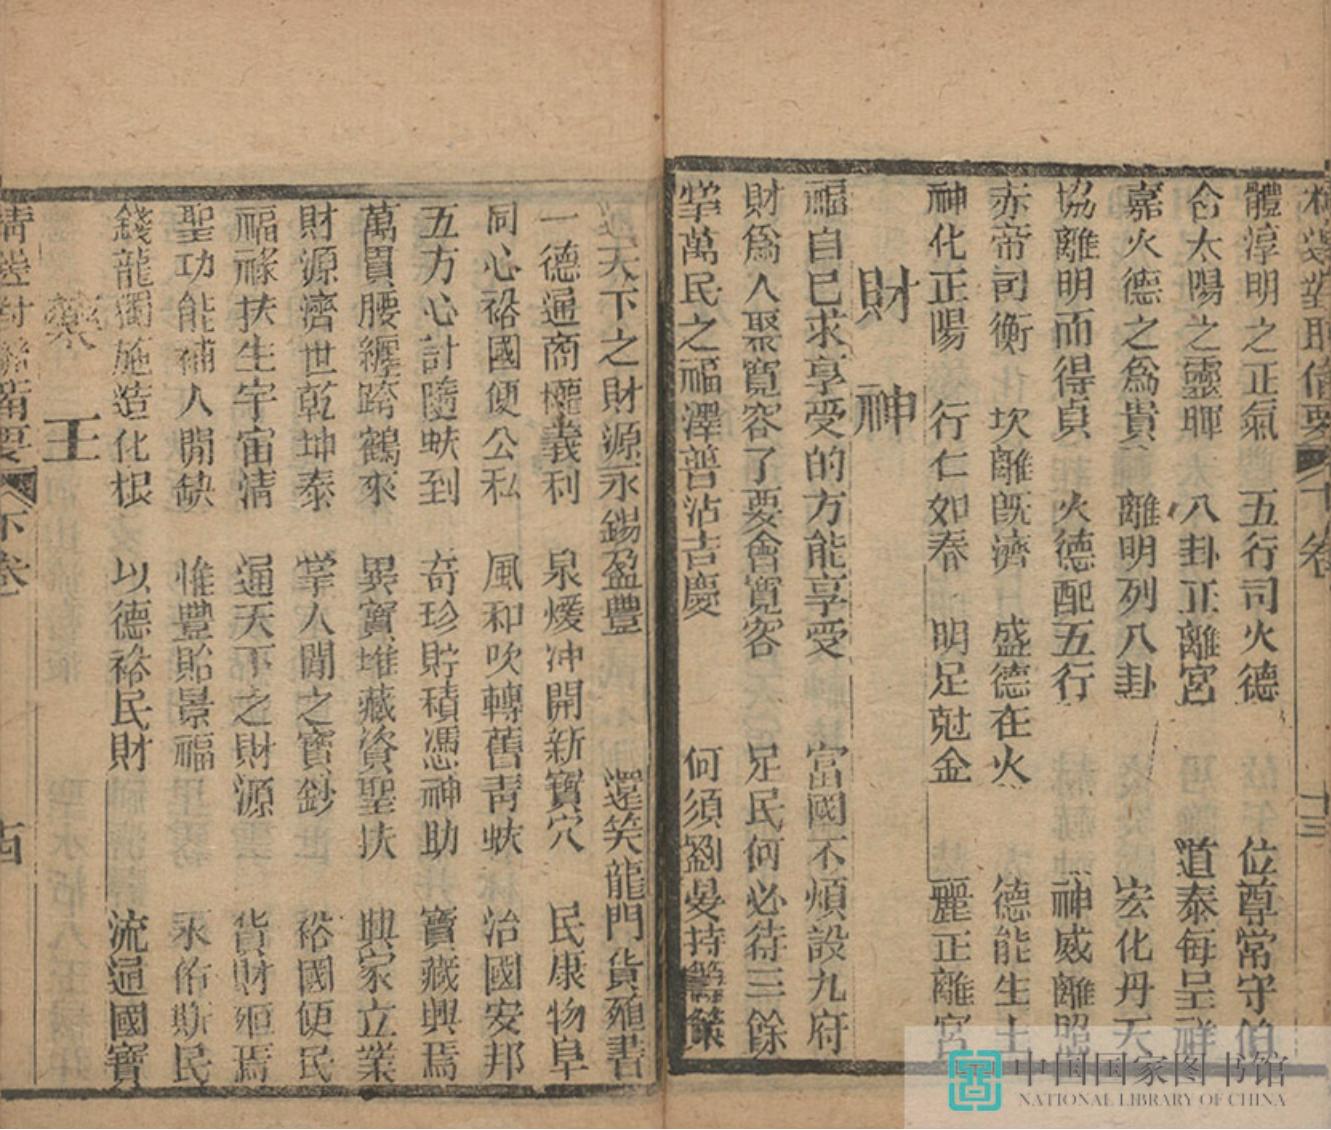 體淳明之正氣 五行司火德 位尊常守伯
合太陽之靈暉 八卦正離宮 道泰每呈祥
嘉火德之爲貴 離明列八卦 宏化丹天
協離明而得貞 火德配五行 神威離照
赤帝司衡 坎離旣濟 盛德在火 德能生土
神化正陽 行仁如春 明足尅金 麗正離宮
財神
福自已求享受的方能享受 富國不煩設九府
財爲人聚寬容了要會寬容 足民何必待三餘
掌萬民之福澤普沾吉慶 何須劉晏持籌策
通天下之財源永錫盈豐 還笑龍門貨殖書
一德通商權義利 泉煖冲開新寶穴 民康物阜
同心裕國便公私 風和吹轉舊青蚨 治國安邦
五方心計隨蚨到 奇珍貯積憑神助 寶藏興焉
萬貫腰纏跨鶴來 異寶堆藏資聖扶 興家立業
財源濟世乾坤泰 掌人間之寶鈔 裕國便民
福祿扶生宇宙清 通天下之財源 貨財殖焉
聖功能補人間缺 惟豐貽景福 永佑斯民
錢龍獨施造化根 以德裕民財 流通國寶
藥王
下卷
中国国家图书馆
NATIONAL LIBRARY OF CHINA